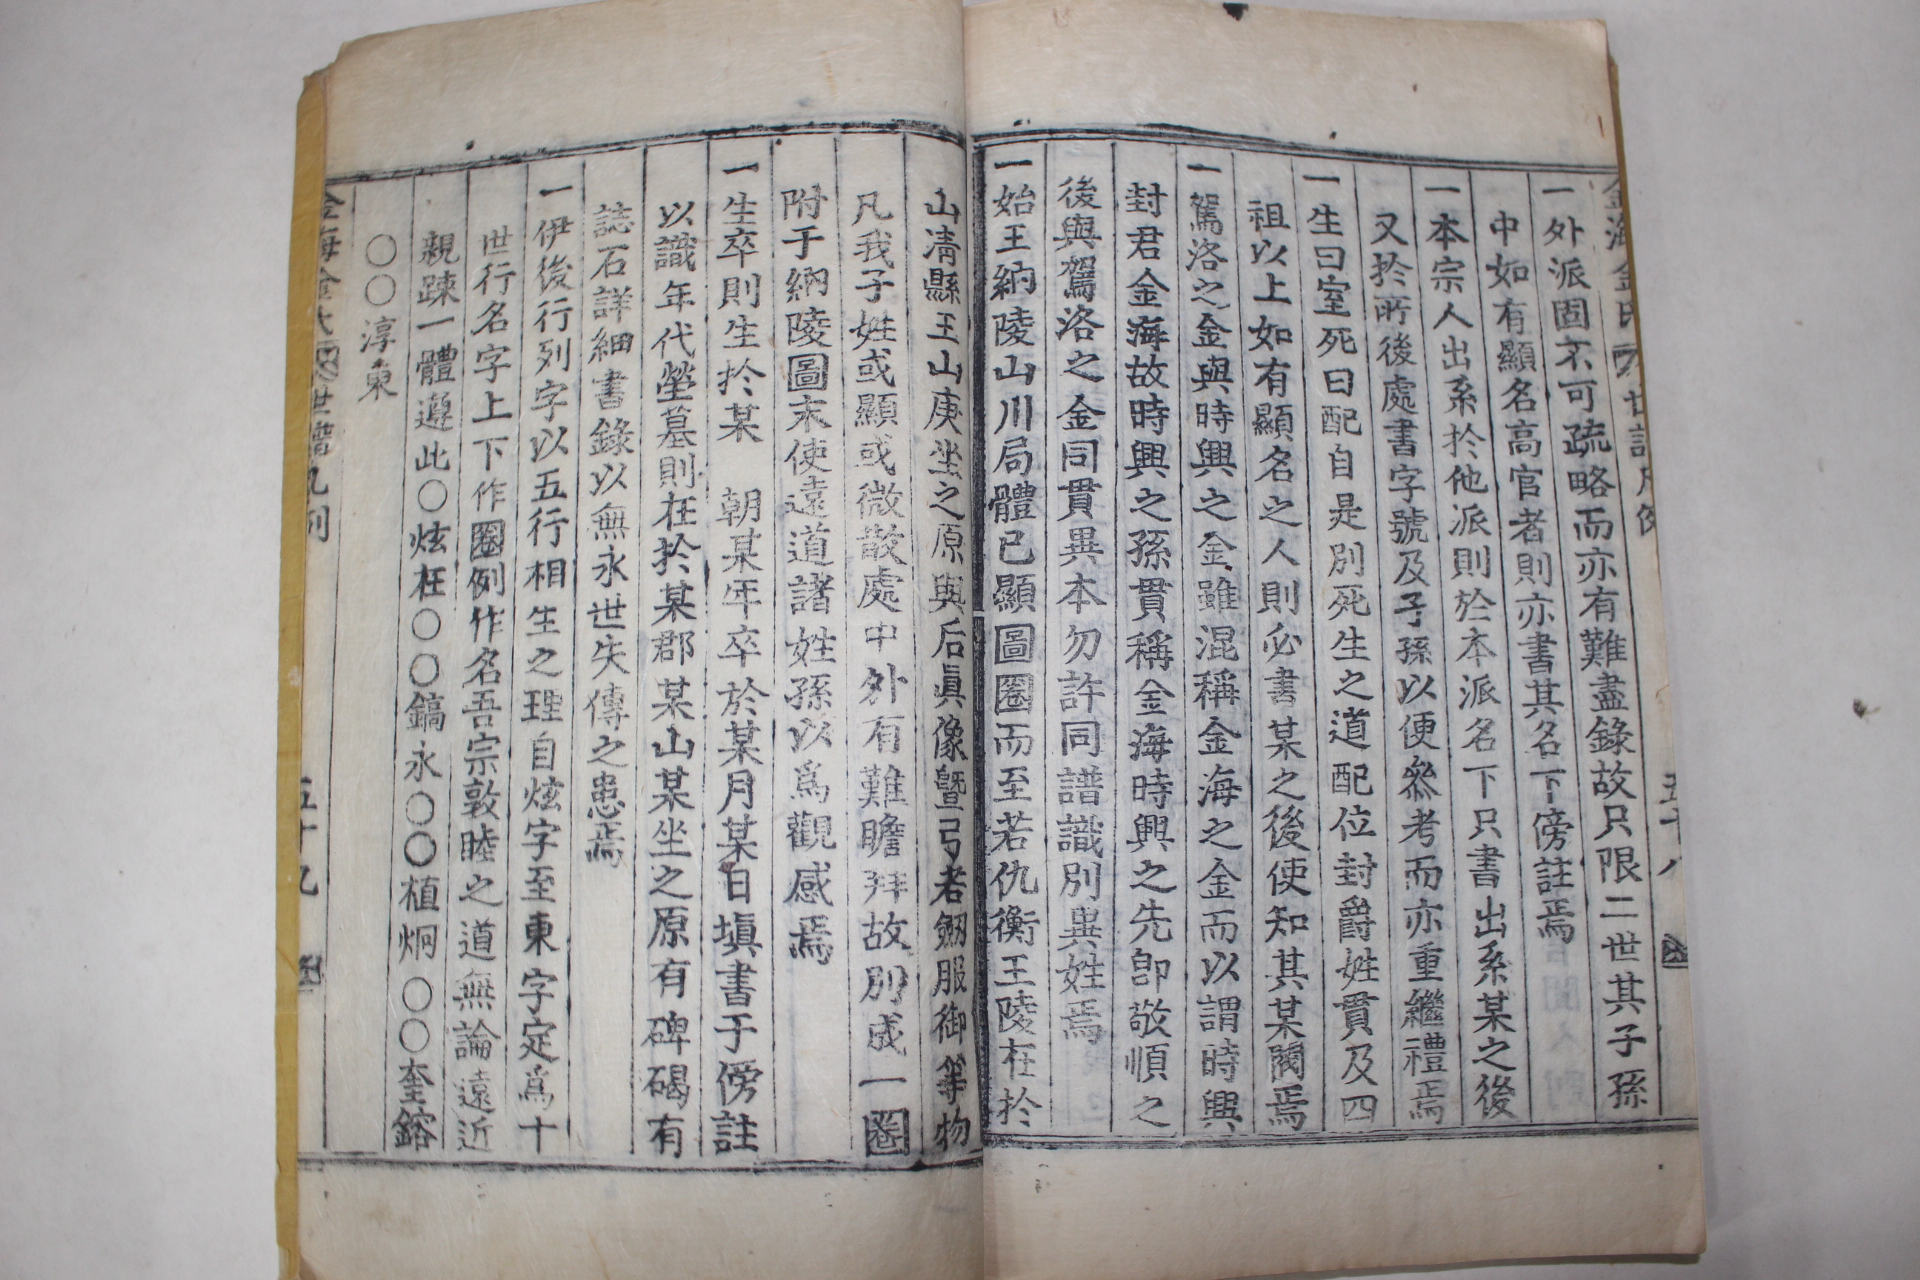 一外派固不可疏略而亦有難盡錄故只限二世其子孫
中如有顯名高官者則亦書其名下傍註焉
一本宗人出系於他派則於本派名下只書出系某之後
又於所後處書字號及子孫以便參考而亦重繼禮焉
一生曰室死曰配自是別死生之道配位封爵姓貫及四
祖以上如有顯名之人則必書某之後使知其某閥焉
一駕洛之金與時興之金雖混稱金海之金而以謂時興
封君金海故時興之孫貫稱金海時興之先卽敬順之
後與駕洛之金同貫異本勿許同譜識別異姓焉
一始王納陵山川局體已顯圖圈而至若仇衡王陵在於
山淸縣王山庚坐之原與后眞像曁弓者劒服御等物
凡我子姓或顯或微散處中外有難瞻拜故別成一圈
附于納陵圖末使遠道諸姓孫以爲觀感焉
一生卒則生於某 朝某年卒於某月某日塡書于傍註
以識年代塋墓則在於某郡某山某坐之原有碑碣有
誌石詳細書錄以無永世失傳之患焉
一伊後行列字以五行相生之理自炫字至東字定爲十
世行名字上下作圈例作名吾宗敦睦之道無論遠近
親踈一體遵此○炫在○○鎬永○○植炯○○奎鎔
○○淳東
五十九